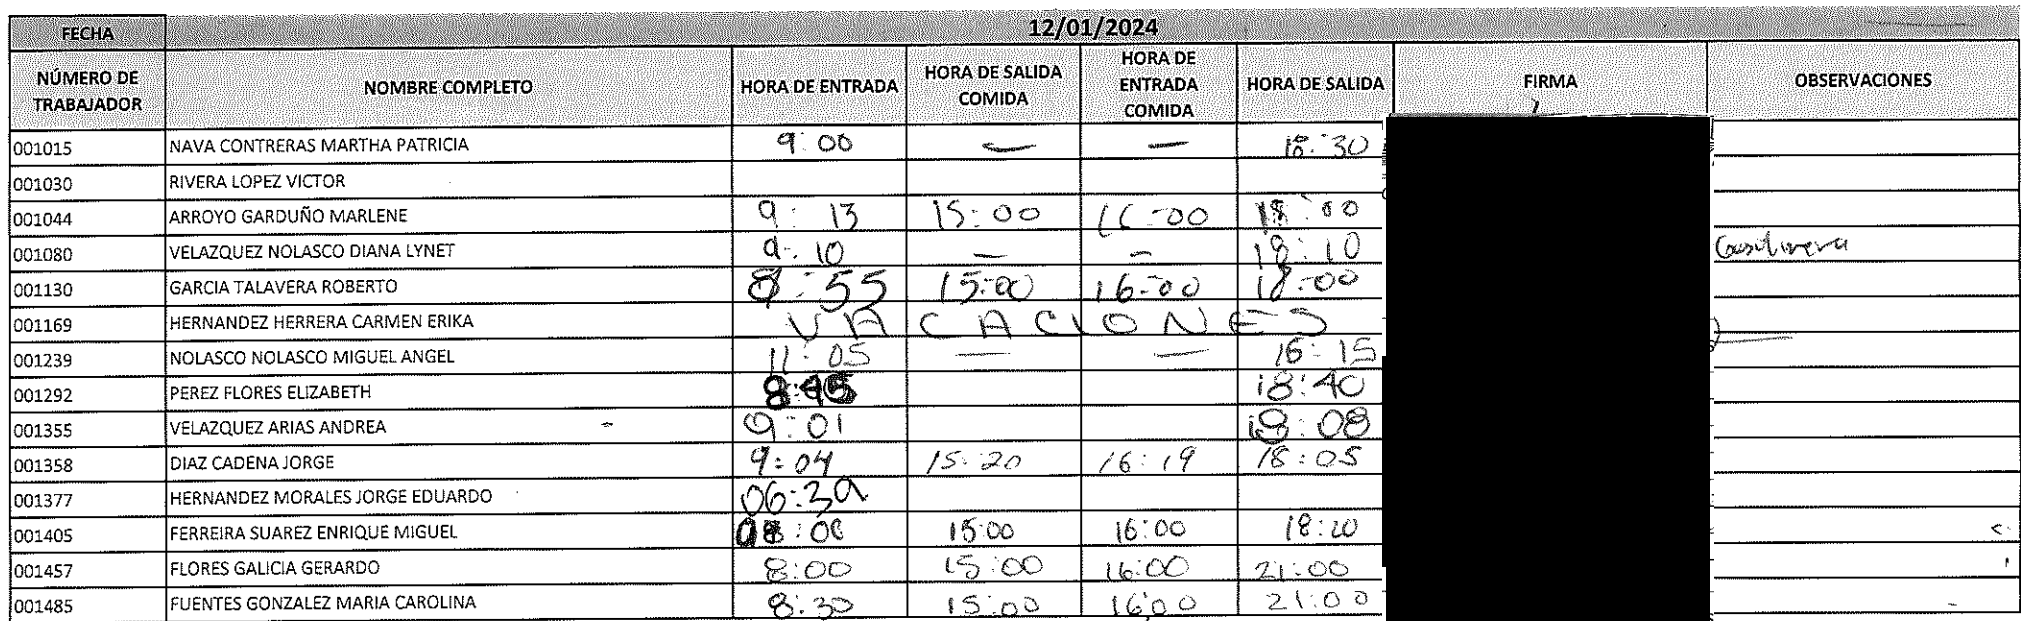 FECHA 12/01/2024
NÚMERO DE TRABAJADOR NOMBRE COMPLETO HORA DE ENTRADA HORA DE SALIDA COMIDA HORA DE ENTRADA COMIDA HORA DE SALIDA FIRMA OBSERVACIONES
001015 NAVA CONTRERAS MARTHA PATRICIA 9:00 — — 18:30
001030 RIVERA LOPEZ VICTOR
001044 ARROYO GARDUÑO MARLENE 9:13 15:00 16:00 18:00
001080 VELAZQUEZ NOLASCO DIANA LYNET 9:10 — — 18:10
001130 GARCIA TALAVERA ROBERTO 8:55 15:00 16:00 18:00
001169 HERNANDEZ HERRERA CARMEN ERIKA VACACIONES
001239 NOLASCO NOLASCO MIGUEL ANGEL 11:05 — — 16:15
001292 PEREZ FLORES ELIZABETH 8:45 18:40
001355 VELAZQUEZ ARIAS ANDREA 9:01 18:08
001358 DIAZ CADENA JORGE 9:04 15:20 16:19 18:05
001377 HERNANDEZ MORALES JORGE EDUARDO
001405 FERREIRA SUAREZ ENRIQUE MIGUEL 15:00 16:00 18:20
001457 FLORES GALICIA GERARDO 8:00 15:00 16:00 21:00
001485 FUENTES GONZALEZ MARIA CAROLINA 8:30 15:00 16:00 21:00